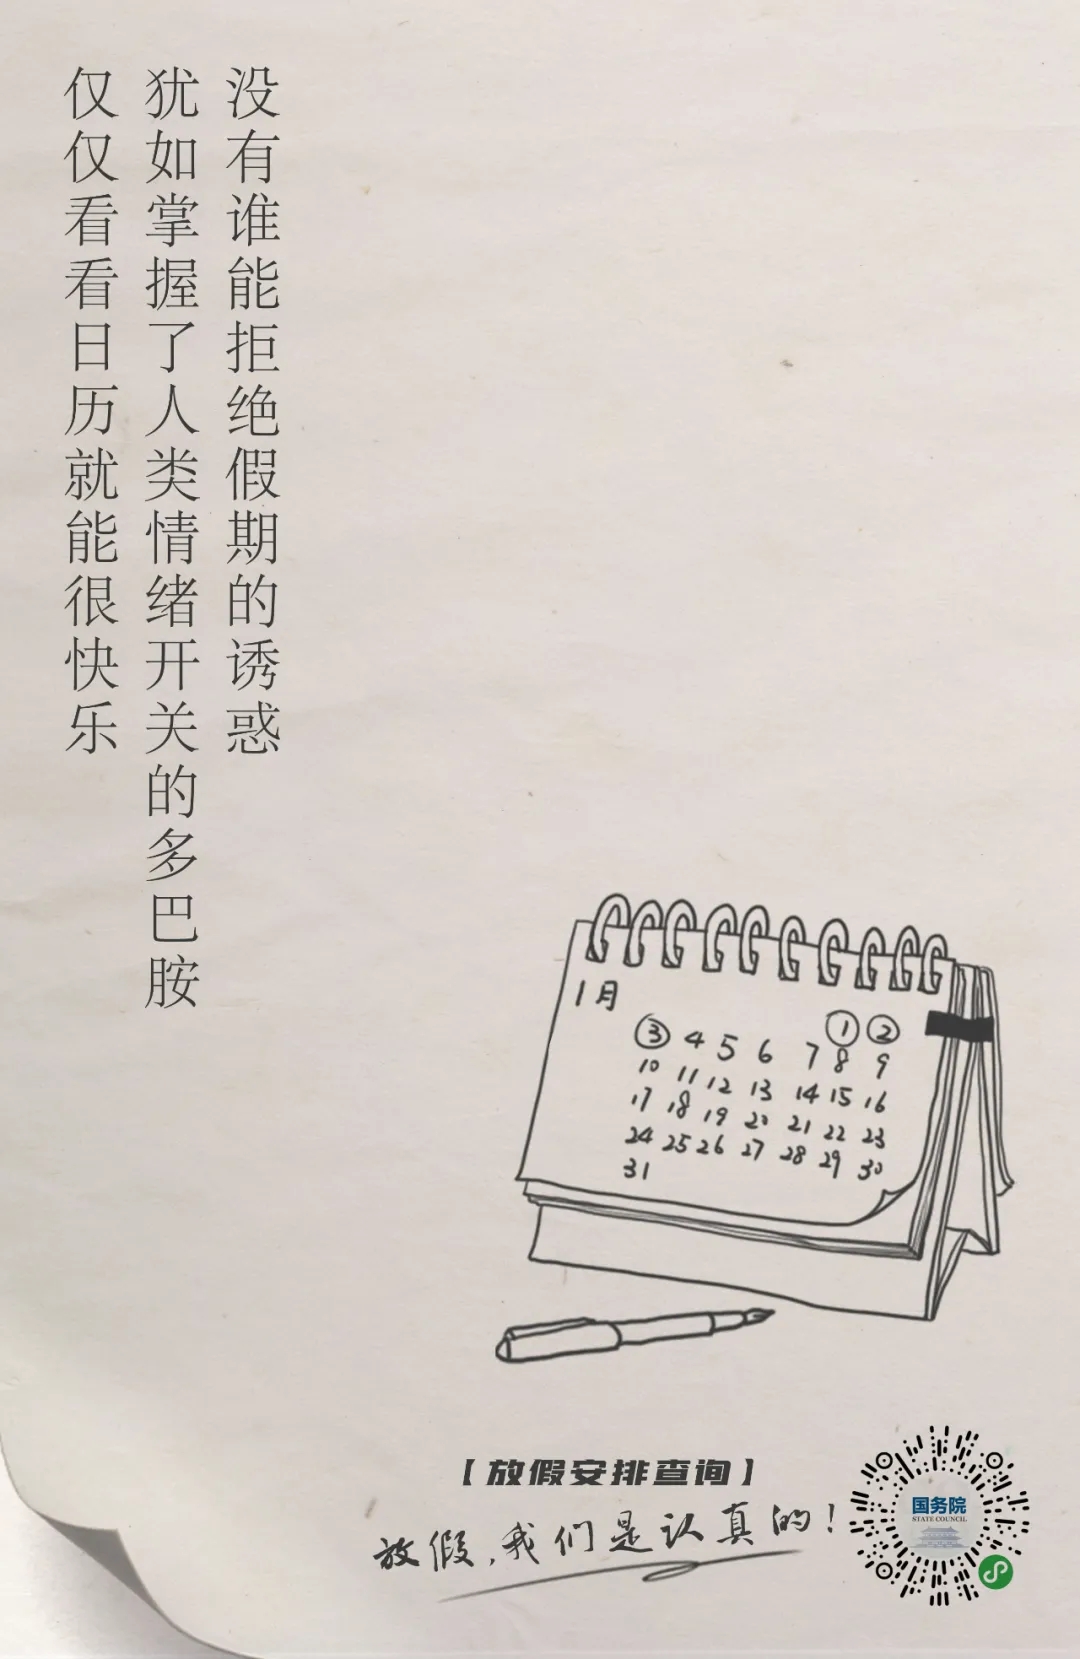 没有谁能拒绝假期的诱惑
犹如掌握了人类情绪开关的多巴胺
仅仅看看日历就能很快乐
1月
3 4 5 6 7 1 2
10 11 12 13 8 9
17 18 19 20 14 15 16
24 25 26 27 21 22 23
31 28 29 30
【放假安排查询】
放假,我们是认真的!
国务院
STATE COUNCIL